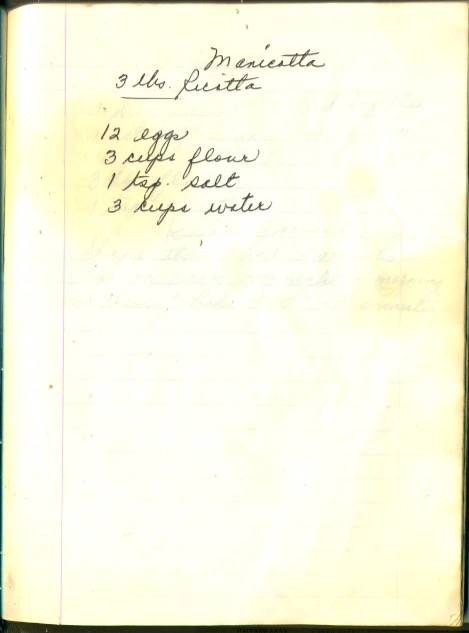 Manicotta
3 lbs. Ricotta
12 eggs
3 cups flour
1 tsp. salt
3 cups water